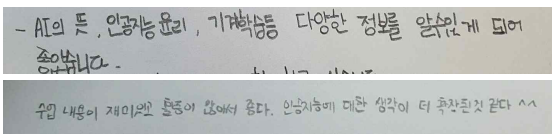 - AI의 뜻, 인공지능 윤리, 기계학습등 다양한 정보를 알수있게 되어
좋았습니다.
수업 내용이 재미있고 활동이 많아서 좋다. 인공지능에 대한 생각이 더 확장된것 같다 ^^